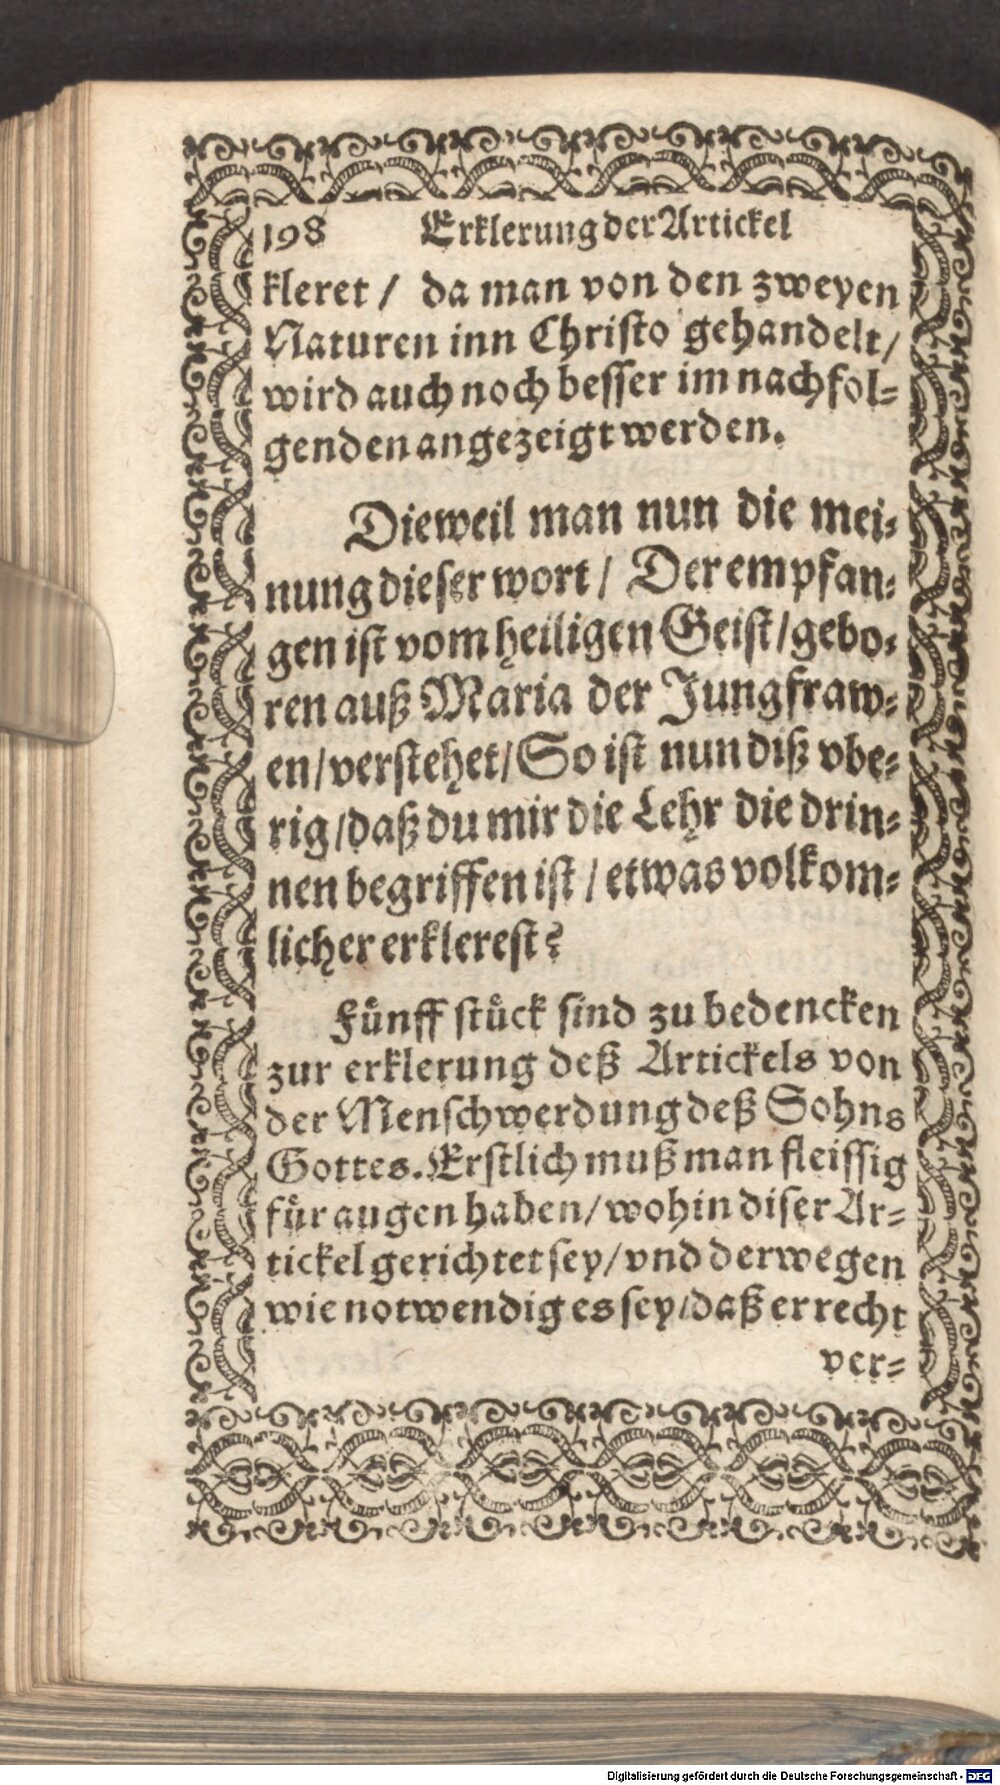 198 Erklerung der Artickel
kleret / da man von den zweyen
Naturen inn Christo gehandelt /
wird auch noch besser im nachfol=
genden angezeigt werden.
Dieweil man nun die mei=
nung dieser wort / Der empfan=
gen ist vom heiligen Geist / gebo=
ren auß Maria der Jungfraw=
en / verstehet / So ist nun diß vbe=
rig / daß du mir die Lehr die drin=
nen begriffen ist / etwas volkom=
licher erklerest?
Fuͤnff stuͤck sind zu bedencken
zur erklerung deß Artickels von
der Menschwerdung deß Sohns
Gottes. Erstlich muß man fleissig
fuͤr augen haben / wohin diser Ar=
tickel gerichtet sey / vnd derwegen
wie notwendig es sey / daß er recht
ver=
Digitalisierung gefördert durch die Deutsche Forschungsgemeinschaft - DFG